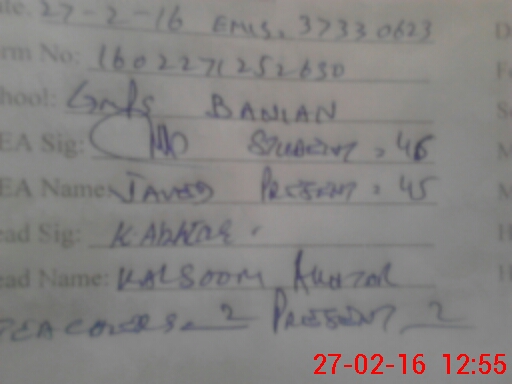 ate. 27-2-16 EMIS. 37330623
orm No: 1602271252630
chool: GMPS BANIAN
EA Sig: STUDENT = 46
EA Name: JAVED PRESENT = 45
ead Sig: K. AKHTAR
ead Name: KALSOOM AKHTAR
TEACHERS = 2 PRESENT 2
27-02-16 12:55